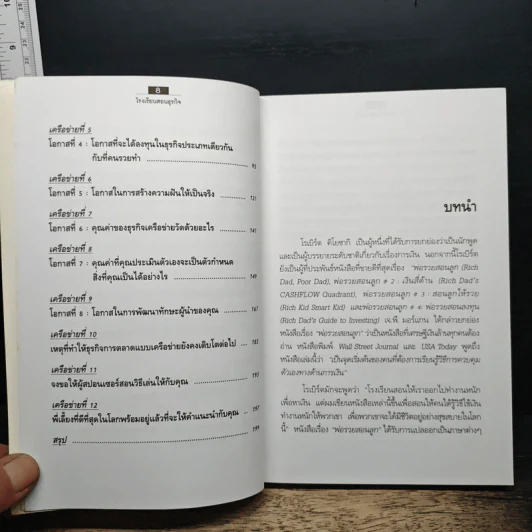 8
โรงเรียนสอนธุรกิจ
เครือข่ายที่ 5
โอกาสที่ 4 : โอกาสที่จะได้ลงทุนในธุรกิจประเภทเดียวกัน
กับที่คนรวยทำ 93
เครือข่ายที่ 6
โอกาสที่ 5 : โอกาสในการสร้างความฝันให้เป็นจริง 121
เครือข่ายที่ 7
โอกาสที่ 6 : คุณค่าของธุรกิจเครือข่ายวัดด้วยอะไร 141
เครือข่ายที่ 8
โอกาสที่ 7 : คุณค่าที่คุณประเมินตัวเองจะเป็นตัวกำหนด
สิ่งที่คุณเป็นได้อย่างไร 149
เครือข่ายที่ 9
โอกาสที่ 8 : โอกาสในการพัฒนาทักษะผู้นำของคุณ 167
เครือข่ายที่ 10
เหตุที่ทำให้ธุรกิจการตลาดแบบเครือข่ายยังคงเติบโตต่อไป 181
เครือข่ายที่ 11
จงขอให้ผู้สปอนเซอร์สอนวิธีเล่นให้กับคุณ 195
เครือข่ายที่ 12
พี่เลี้ยงที่ดีที่สุดในโลกพร้อมอยู่แล้วที่จะให้คำแนะนำกับคุณ 197
สรุป 199
บทนำ
โรเบิร์ต คิโยซากิ เป็นผู้หนึ่งที่ได้รับการยกย่องว่าเป็นนักพูด
และเป็นผู้บรรยายระดับชาติเกี่ยวกับเรื่องการเงิน นอกจากนี้โรเบิร์ต
ยังเป็นผู้ที่ประพันธ์หนังสือที่ขายดีที่สุดเรื่อง "พ่อรวยสอนลูก (Rich
Dad, Poor Dad), พ่อรวยสอนลูก # 2 : เงินสี่ด้าน (Rich Dad's
CASHFLOW Quadrant), พ่อรวยสอนลูก # 3 : สอนลูกให้รวย
(Rich Kid Smart Kid) และพ่อรวยสอนลูก # 4: พ่อรวยสอนลงทุน
(Rich Dad's Guide to Investing) เจ.พี มอร์แกน ได้กล่าวยกย่อง
หนังสือเรื่อง "พ่อรวยสอนลูก" ว่าเป็นหนังสือที่เศรษฐีเงินล้านทุกคนต้อง
อ่าน หนังสือพิมพ์ Wall Street Journal และ USA Today พูดถึง
หนังสือเล่มนี้ว่า "เป็นจุดเริ่มต้นของคนที่ต้องการเรียนรู้วิธีการควบคุม
ตัวเองทางด้านการเงิน"
โรเบิร์ตมักจะพูดว่า "โรงเรียนสอนให้เราออกไปทำงานหนัก
เพื่อหาเงิน แต่ผมเขียนหนังสือเหล่านี้ขึ้นเพื่อสอนให้คนได้รู้วิธีใช้เงิน
ทำงานหนักให้พวกเขา เพื่อพวกเขาจะได้มีชีวิตอยู่อย่างสุขสบายในโลก
นี้" หนังสือเรื่อง "พ่อรวยสอนลูก" ได้รับการแปลออกเป็นภาษาต่างๆ